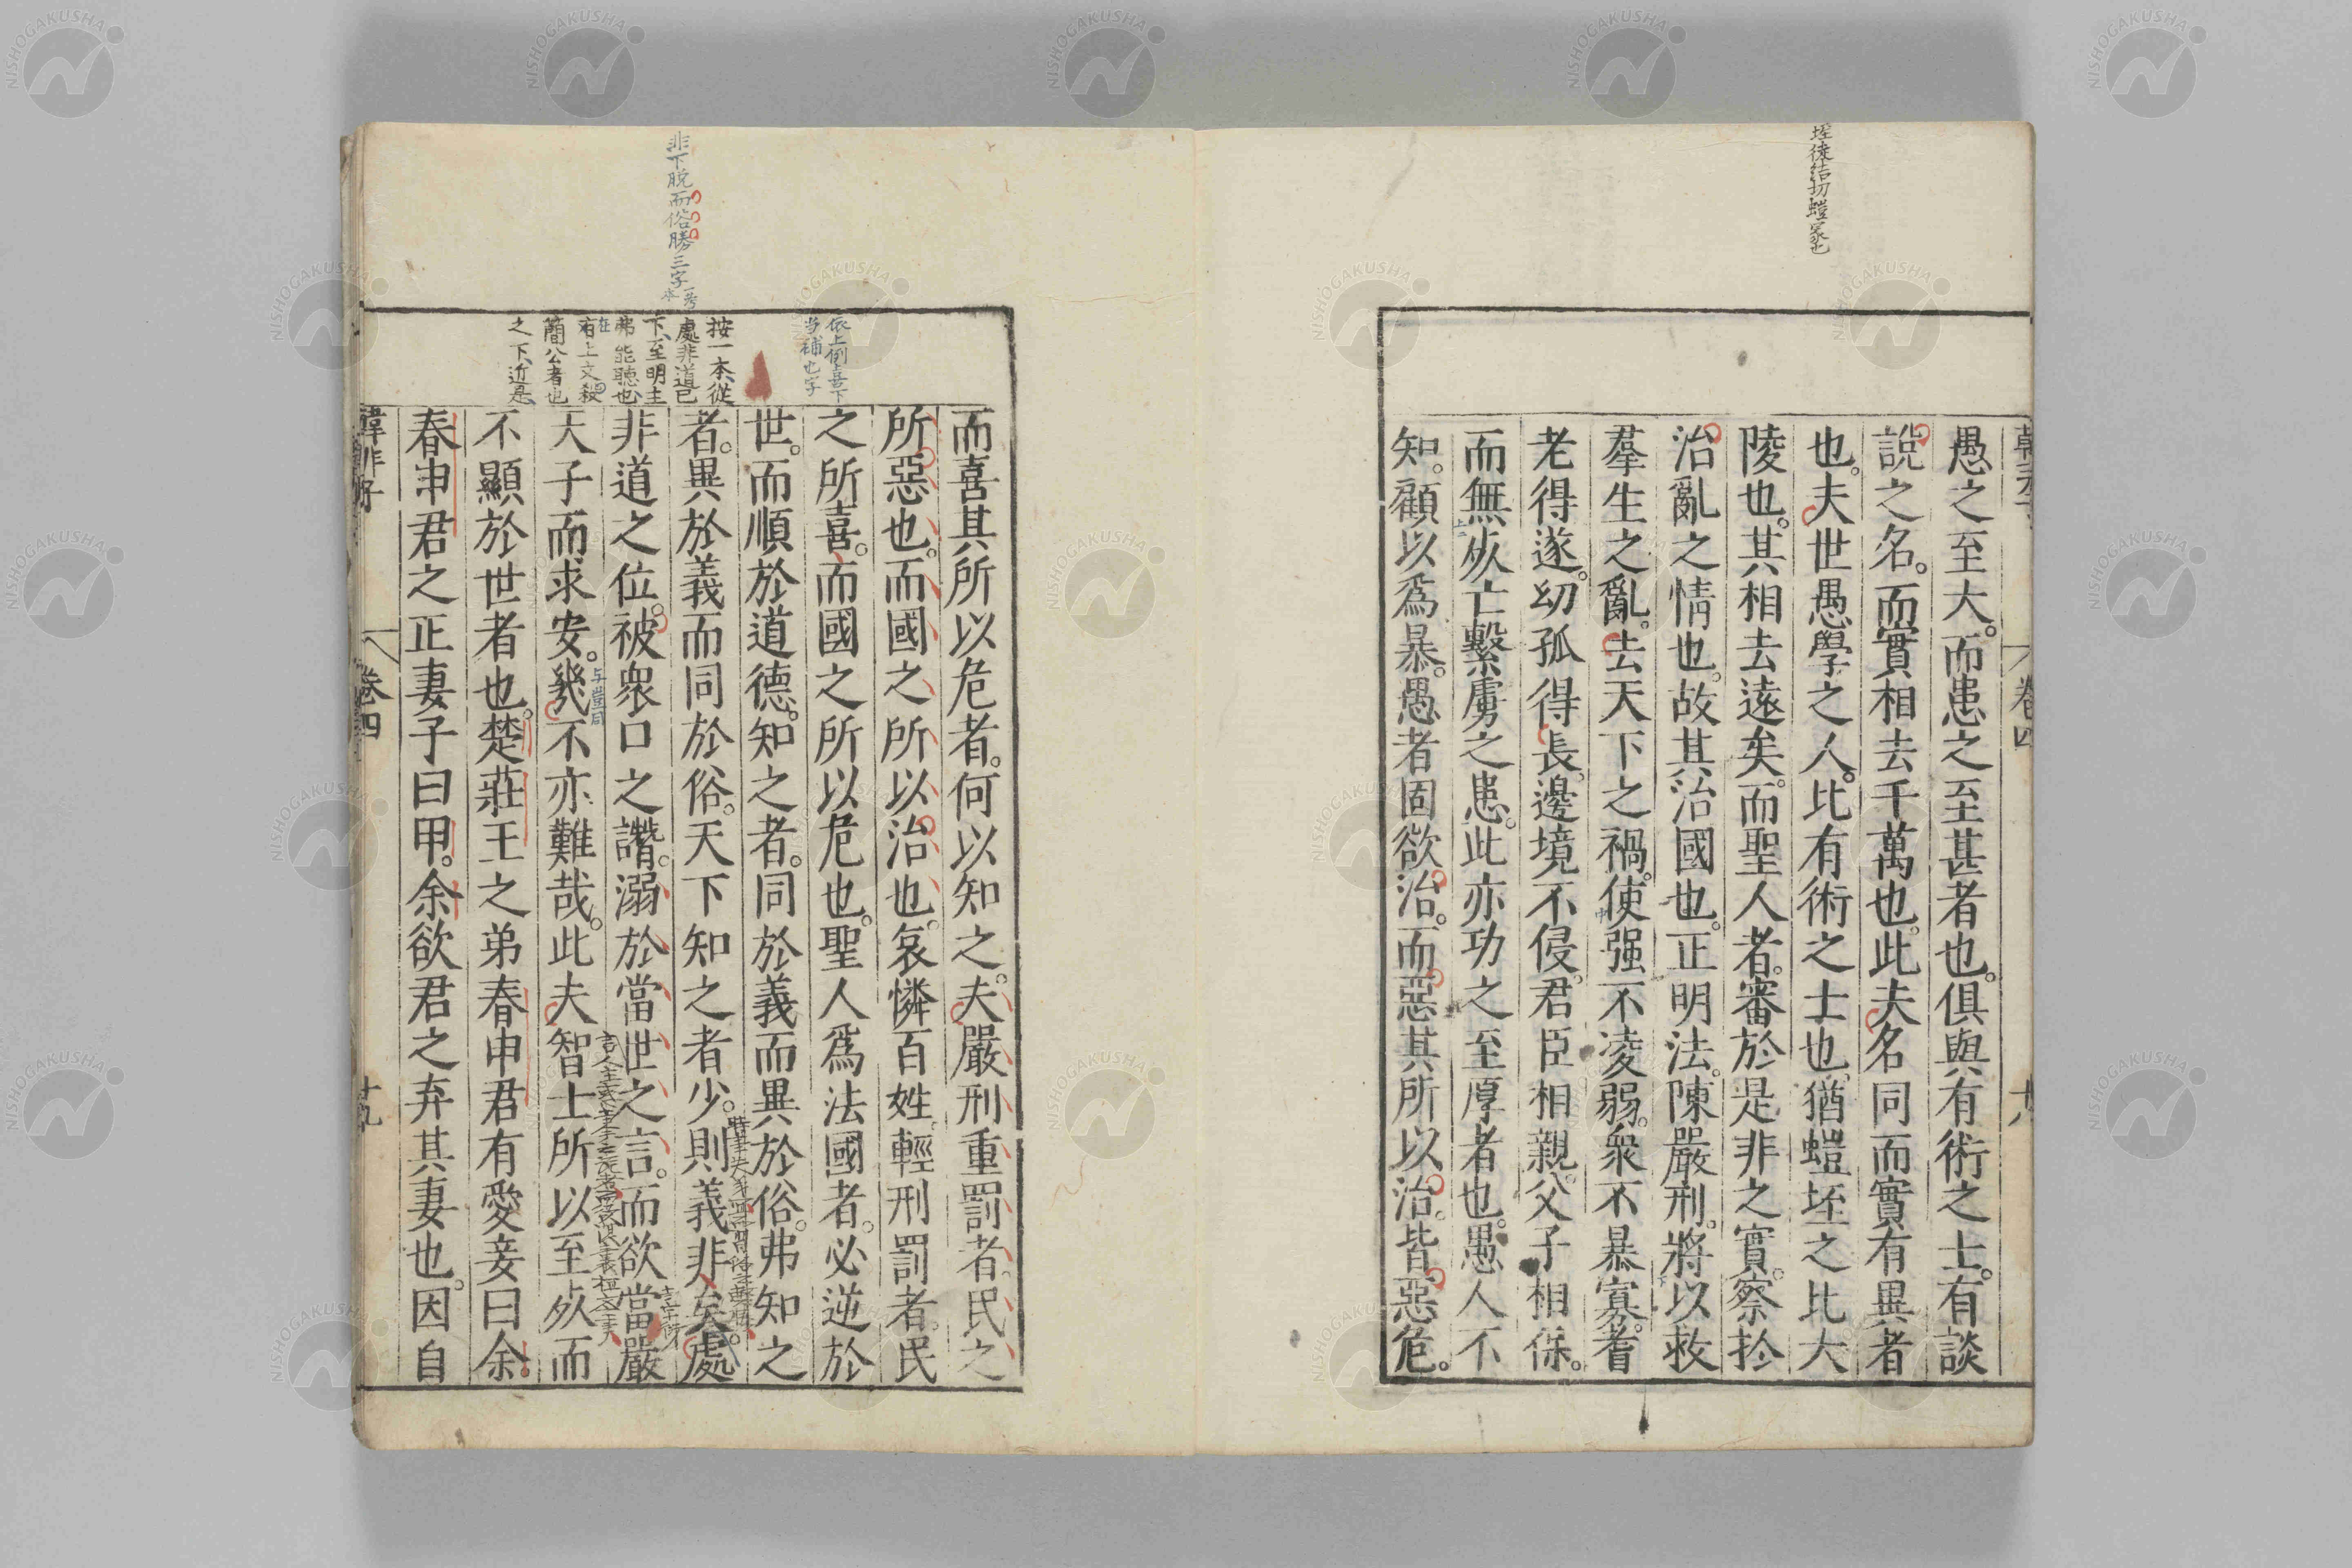 垤徒結切螘冡也
愚之至大。而患之至甚者也。俱與有術之士。有談
說之名。而實相去千萬也。此夫名同而實有異者
也。夫世愚學之人。比有術之士也。猶螘垤之比大
陵也。其相去遠矣。而聖人者。審於是非之實。察扵
治亂之情也。故其治國也。正明法。陳嚴刑。將以救
羣生之亂。去天下之禍。使强不凌弱。衆不暴寡。耆
老得遂。幼孤得長。邊境不侵。君臣相親。父子相保。
而無死亡繫虜之患。此亦功之至厚者也。愚人不
知。顧以爲暴。愚者固欲治。而惡其所以治。皆惡危。
卷四
而喜其所以危者。何以知之。夫嚴刑重罰者。民之
所惡也。而國之所以治也。哀憐百姓。輕刑罰者。民
之所喜。而國之所以危也。聖人爲法國者。必逆於
世。而順於道德。知之者。同於義而異於俗。弗知之
者。異於義而同於俗。天下知之者少。則義非矣。處
非道之位。被衆口之譖。溺於當世之言。而欲當嚴
天子而求安。幾不亦難哉。此夫智士所以至死而
不顯於世者也。楚莊王之弟春申君。有愛妾曰余。
春申君之正妻子曰甲。余欲君之弃其妻也。因自
韓非子
卷四
十九
非下脫而俗勝三字
依上例喜下
当補也字
按一本、從
處非道已
下、至明主
弗能聽也
在右上文殺
簡公者也
之下、近是、
与豈同